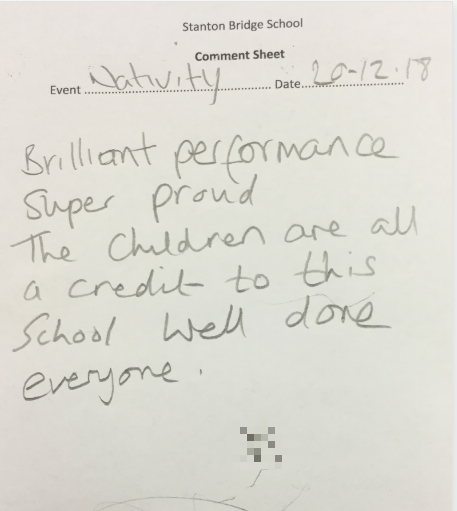 Stanton Bridge School
Comment Sheet
Event Nativity Date 20-12.18
Brilliant performance
Super proud
The Children are all
a credit to this
School Well done
everyone.